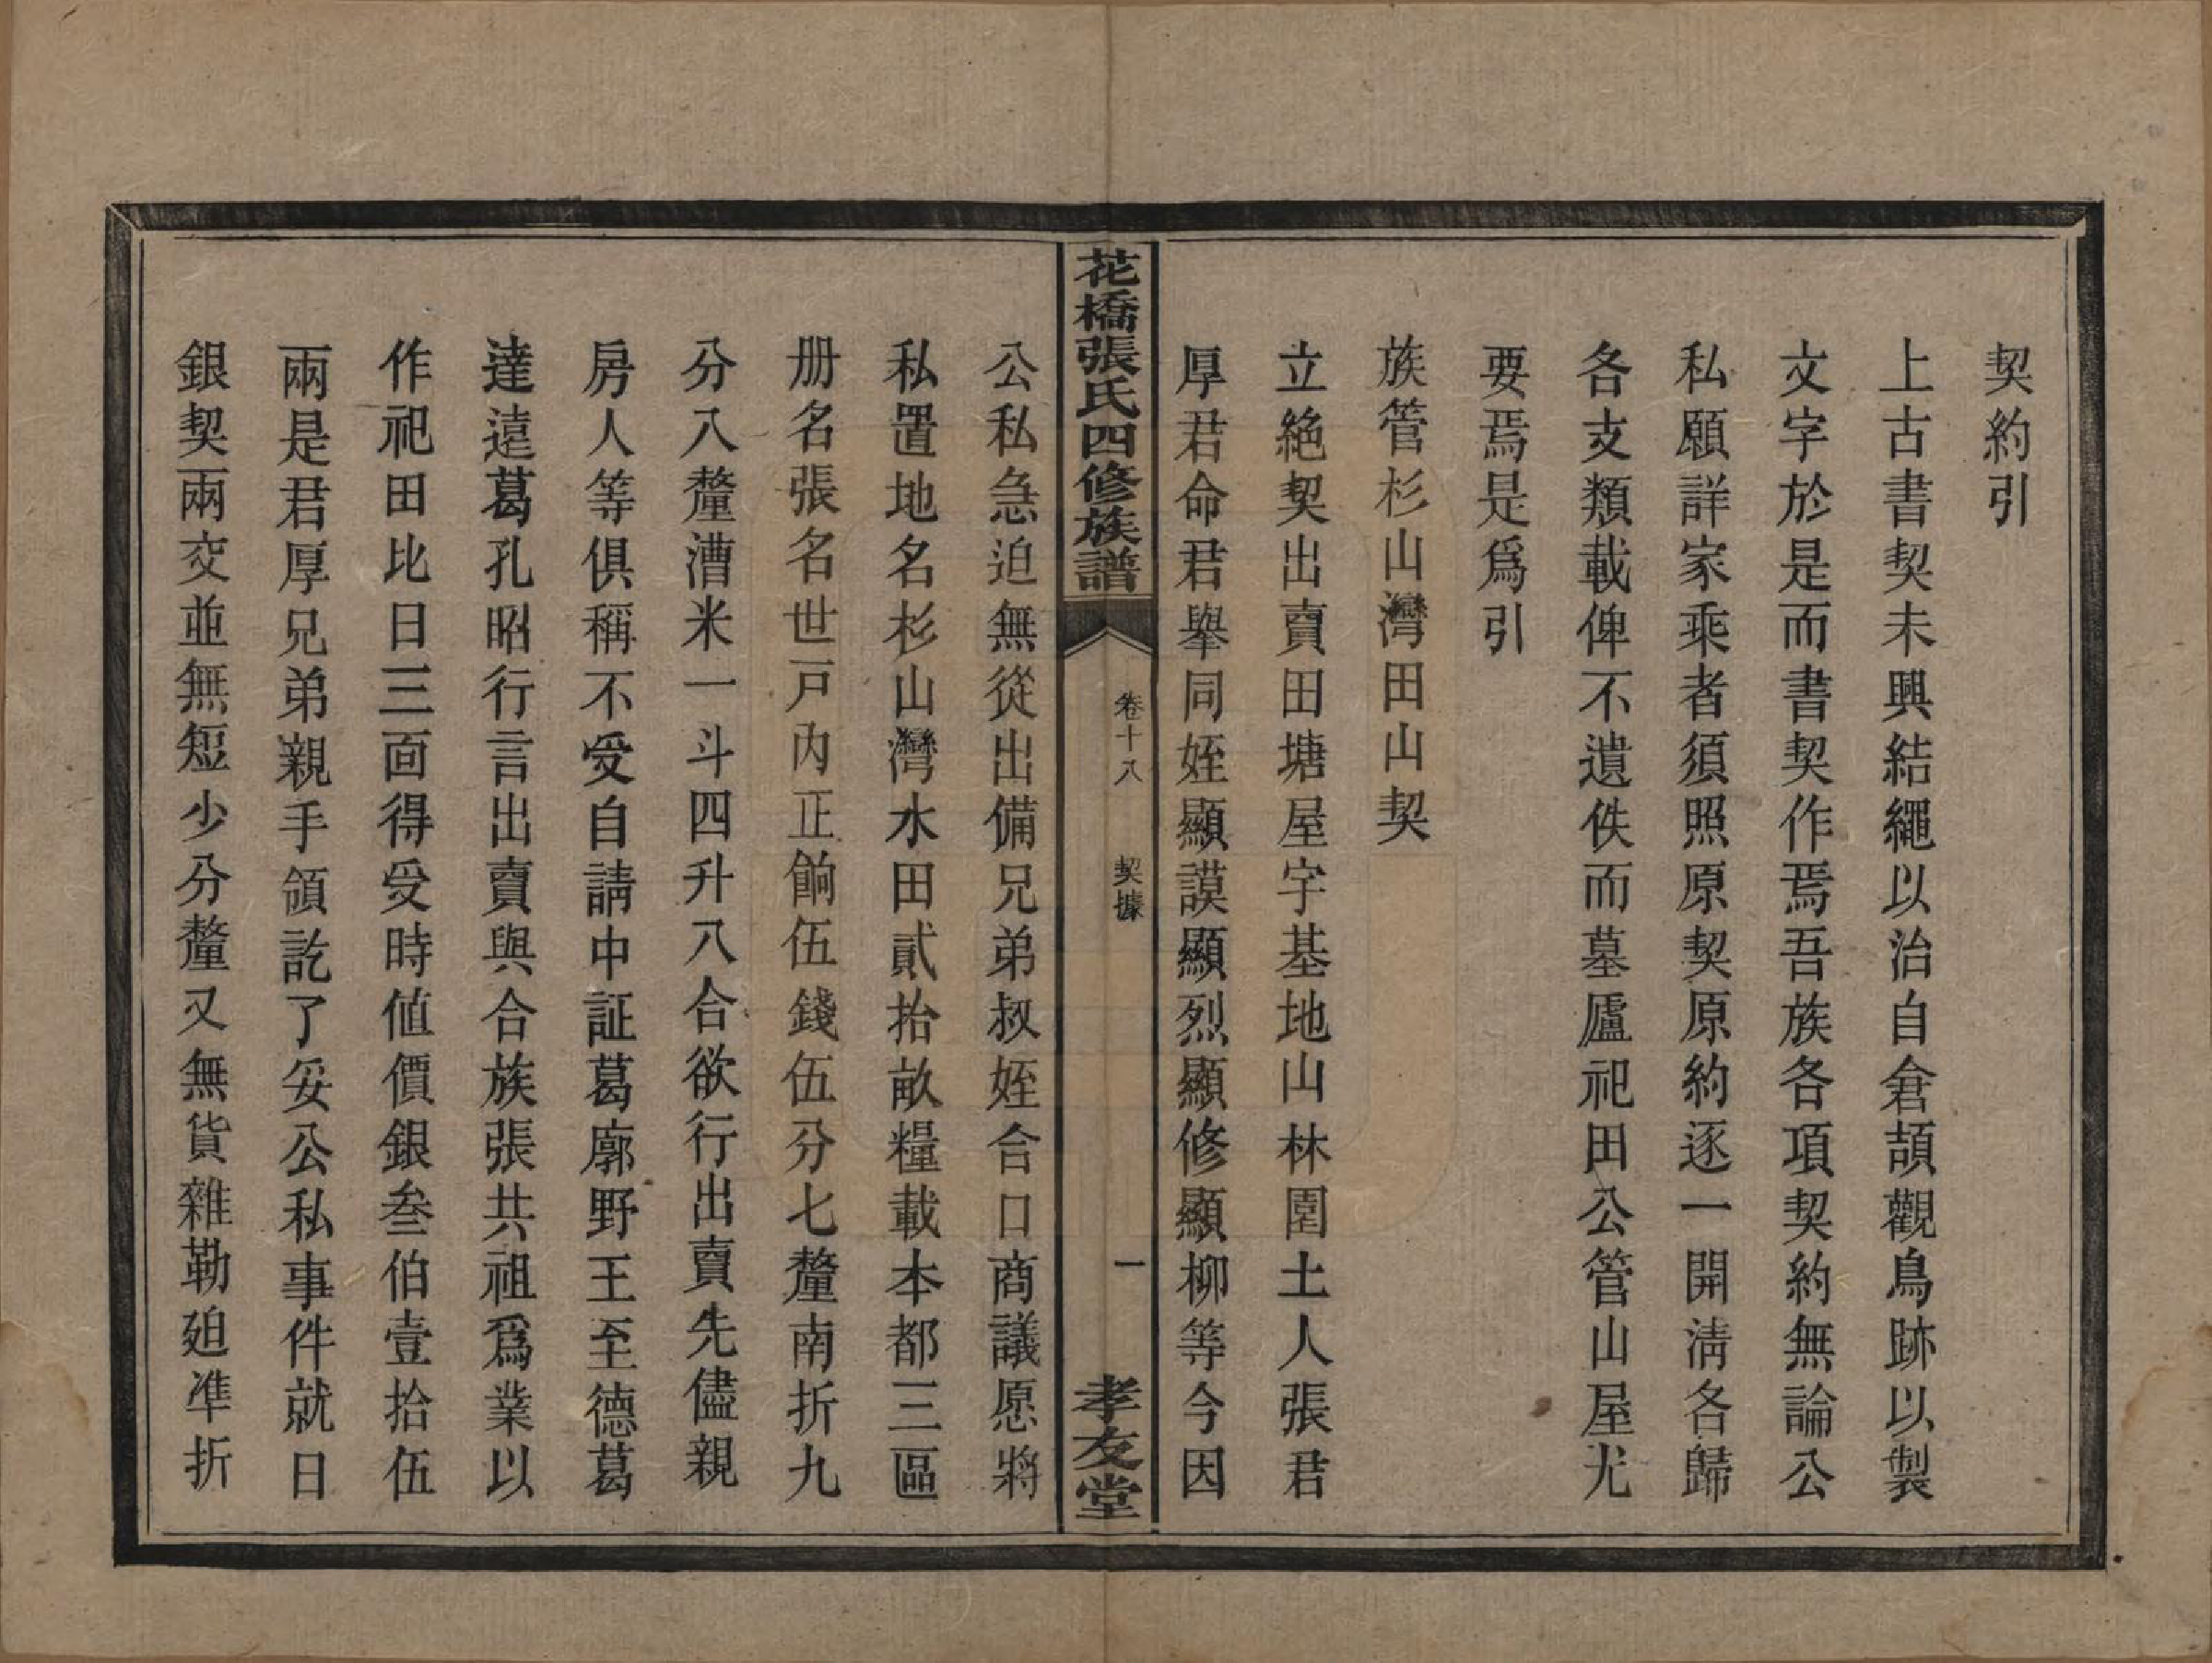 契約引
上古書契未興結繩以治自倉頡觀鳥跡以製
文字於是而書契作焉吾族各項契約無論公
私願詳家乘者須照原契原約逐一開淸各歸
各支類載俾不遺佚而墓廬祀田公管山屋尤
要焉是爲引
族管杉山灣田山契
立絶契出賣田塘屋宇基地山林園土人張君
厚君命君舉同姪顯謨顯烈顯修顯柳等今因
花橋張氏四修族譜
卷十八
契據
一
孝友堂
公私急迫無從出備兄弟叔姪合口商議愿將
私置地名杉山灣水田貳拾畝糧載本都三區
册名張名世戸内正餉伍錢伍分七釐南折九
分八釐漕米一斗四升八合欲行出賣先儘親
房人等俱稱不受自請中証葛廓野王至德葛
達遠葛孔昭行言出賣與合族張共祖爲業以
作祀田比日三面得受時値價銀叁伯壹拾伍
兩是君厚兄弟親手領訖了妥公私事件就日
銀契兩交並無短少分釐又無貨雜勒廹準折